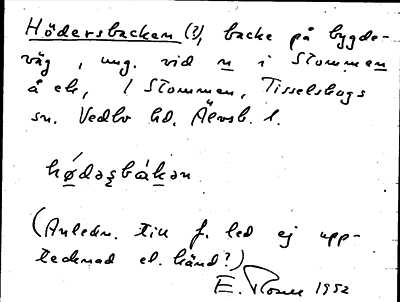 Hödersbacken (?), backe på bygde-
väg, ung. vid n i Stommen
å ek, 1 Stommen, Tisselskogs
sn. Vedbo hd, Älvsb. l.
hǿdəʂbàkən
(Anledn. till f. led ej upp-
tecknad el. känd?)
E. 1952